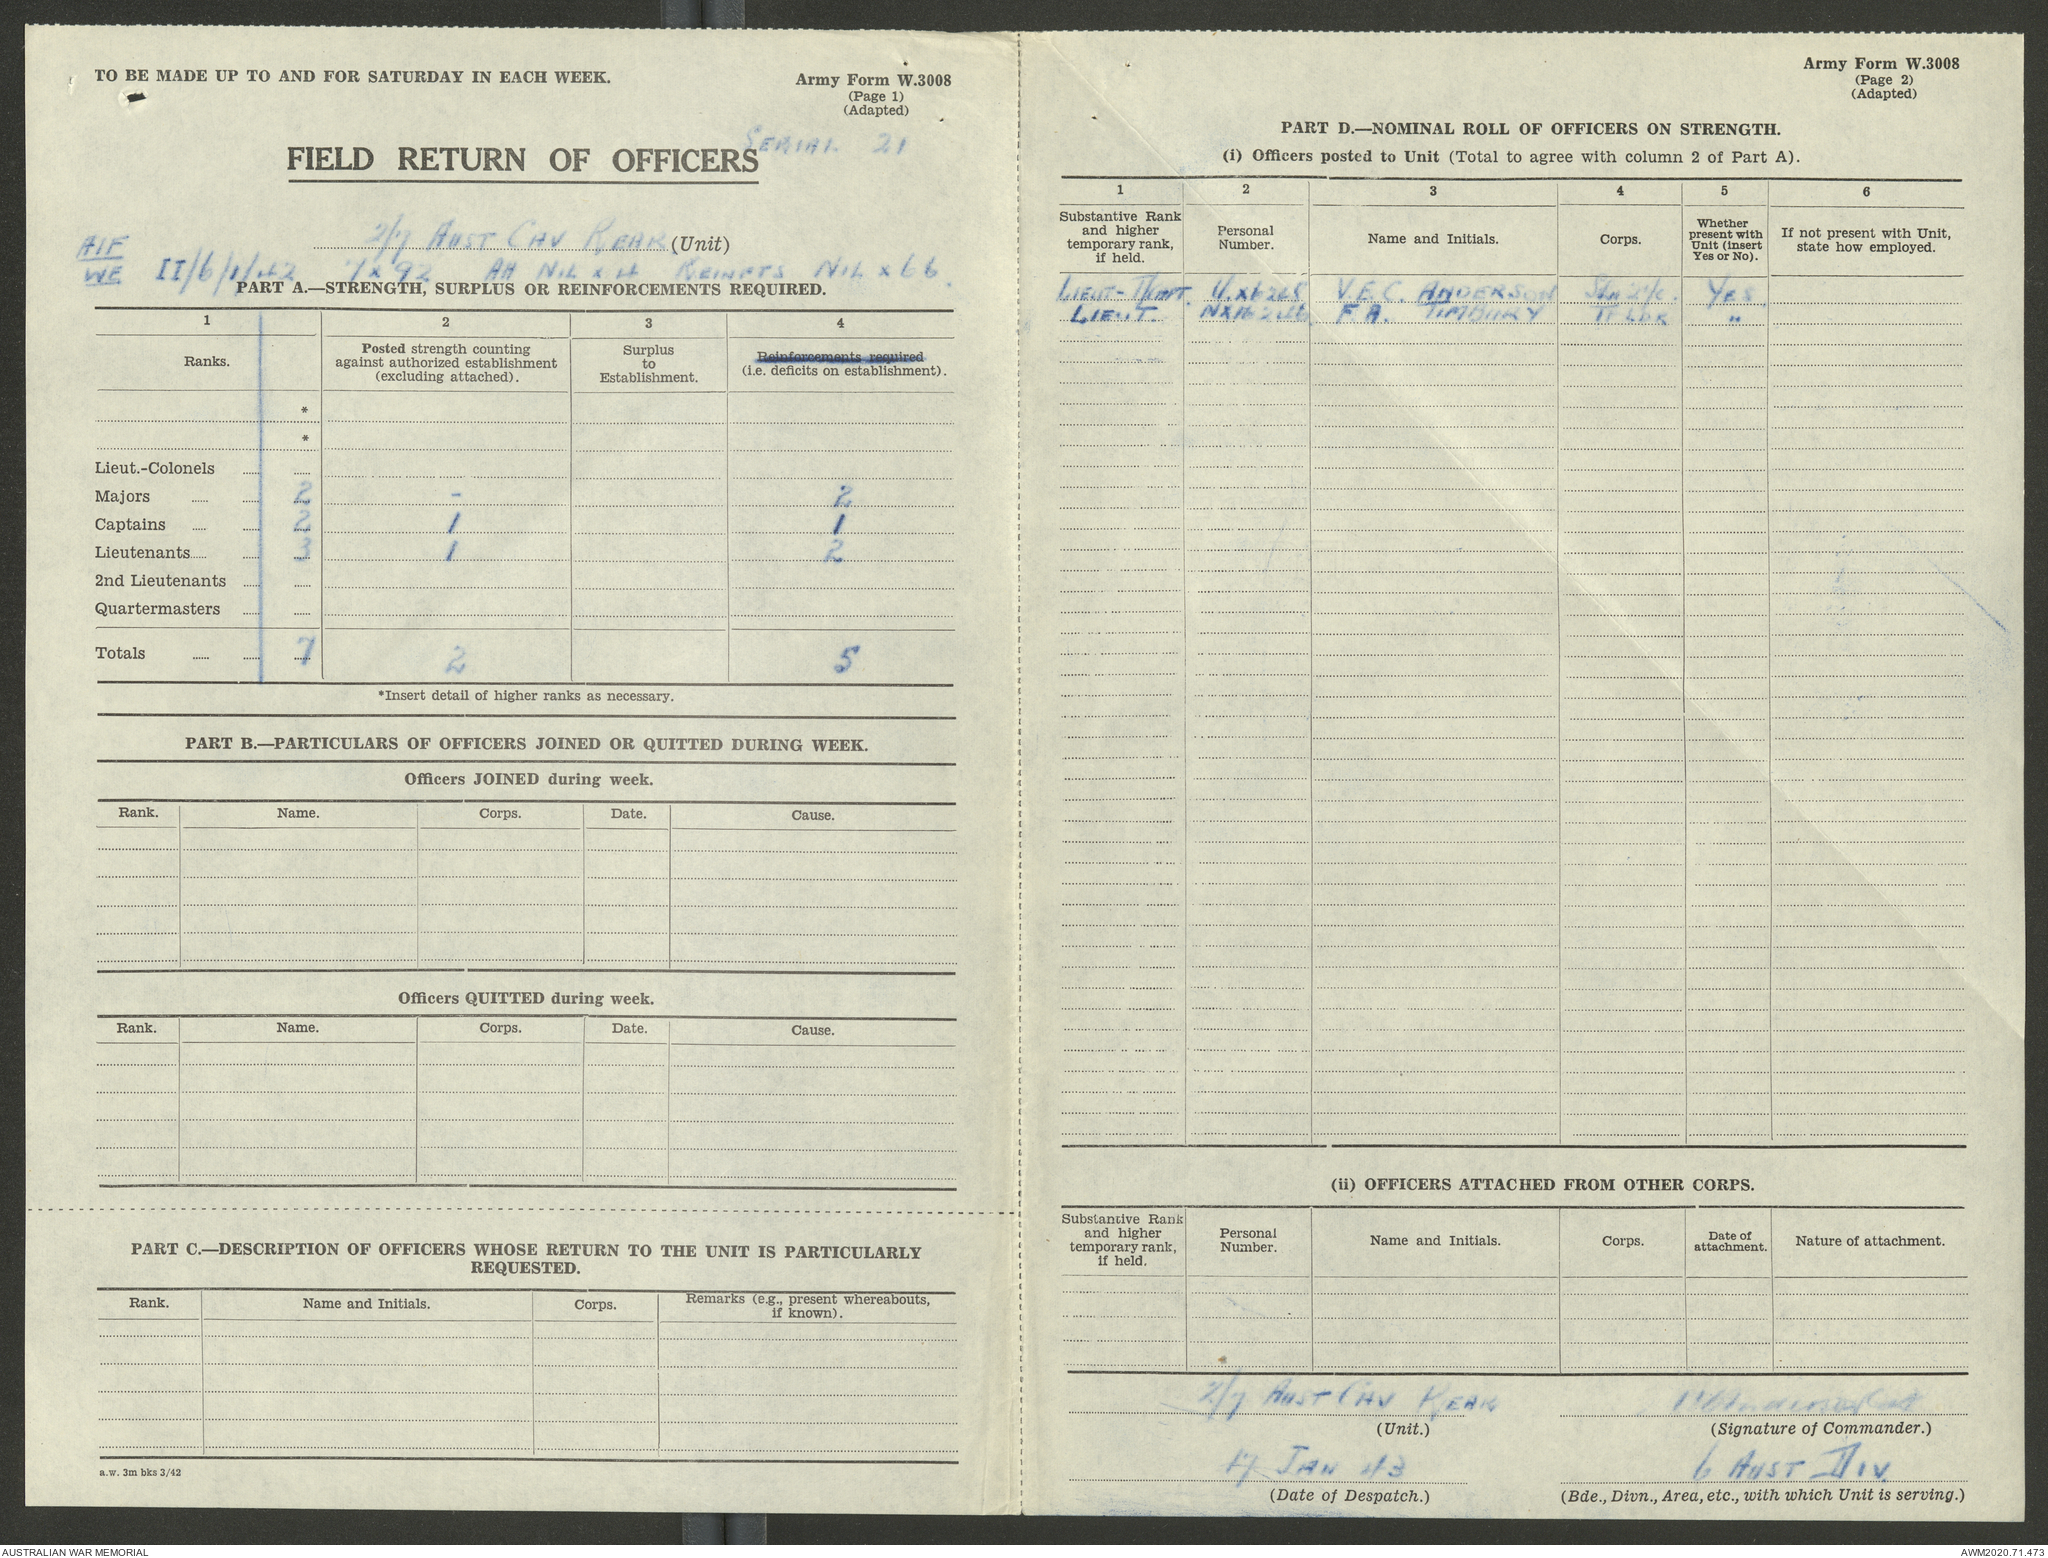 TO BE MADE UP TO AND FOR SATURDAY IN EACH WEEK.
Army Form W.3008
(Page 1)
(Adapted)
SERIAL 21
FIELD RETURN OF OFFICERS
2/7 AUST CAV REAR (Unit)
AIF
WE II/6/1/42 7 x 92 AA NIL x 4 REINFTS NIL x 66
PART A.—STRENGTH, SURPLUS OR REINFORCEMENTS REQUIRED.
1 2 3 4
Ranks.
Posted strength counting against authorized establishment (excluding attached).
Surplus to Establishment.
Reinforcements required (i.e. deficits on establishment).
*
*
Lieut.-Colonels
Majors 2 - 2
Captains 2 1 1
Lieutenants 3 1 2
2nd Lieutenants
Quartermasters
Totals 7 2 5
*Insert detail of higher ranks as necessary.
PART B.—PARTICULARS OF OFFICERS JOINED OR QUITTED DURING WEEK.
Officers JOINED during week.
Rank. Name. Corps. Date. Cause.
Officers QUITTED during week.
Rank. Name. Corps. Date. Cause.
PART C.—DESCRIPTION OF OFFICERS WHOSE RETURN TO THE UNIT IS PARTICULARLY
REQUESTED.
Rank. Name and Initials. Corps. Remarks (e.g., present whereabouts, if known).
a.w. 3m bks 3/42
Army Form W.3008
(Page 2)
(Adapted)
PART D.—NOMINAL ROLL OF OFFICERS ON STRENGTH.
(i) Officers posted to Unit (Total to agree with column 2 of Part A).
1 2 3 4 5 6
Substantive Rank and higher temporary rank, if held.
Personal Number.
Name and Initials.
Corps.
Whether present with Unit (insert Yes or No).
If not present with Unit, state how employed.
LIEUT-T/CAPT. V.E.C. ANDERSON YES
LIEUT. F.A. TIMBURY TP LDR "
(ii) OFFICERS ATTACHED FROM OTHER CORPS.
Substantive Rank and higher temporary rank, if held.
Personal Number.
Name and Initials.
Corps.
Date of attachment.
Nature of attachment.
2/7 AUST CAV REAR
(Unit.)
(Signature of Commander.)
17 JAN 43
6 AUST DIV
(Date of Despatch.)
(Bde., Divn., Area, etc., with which Unit is serving.)
AUSTRALIAN WAR MEMORIAL
AWM2020.71.473